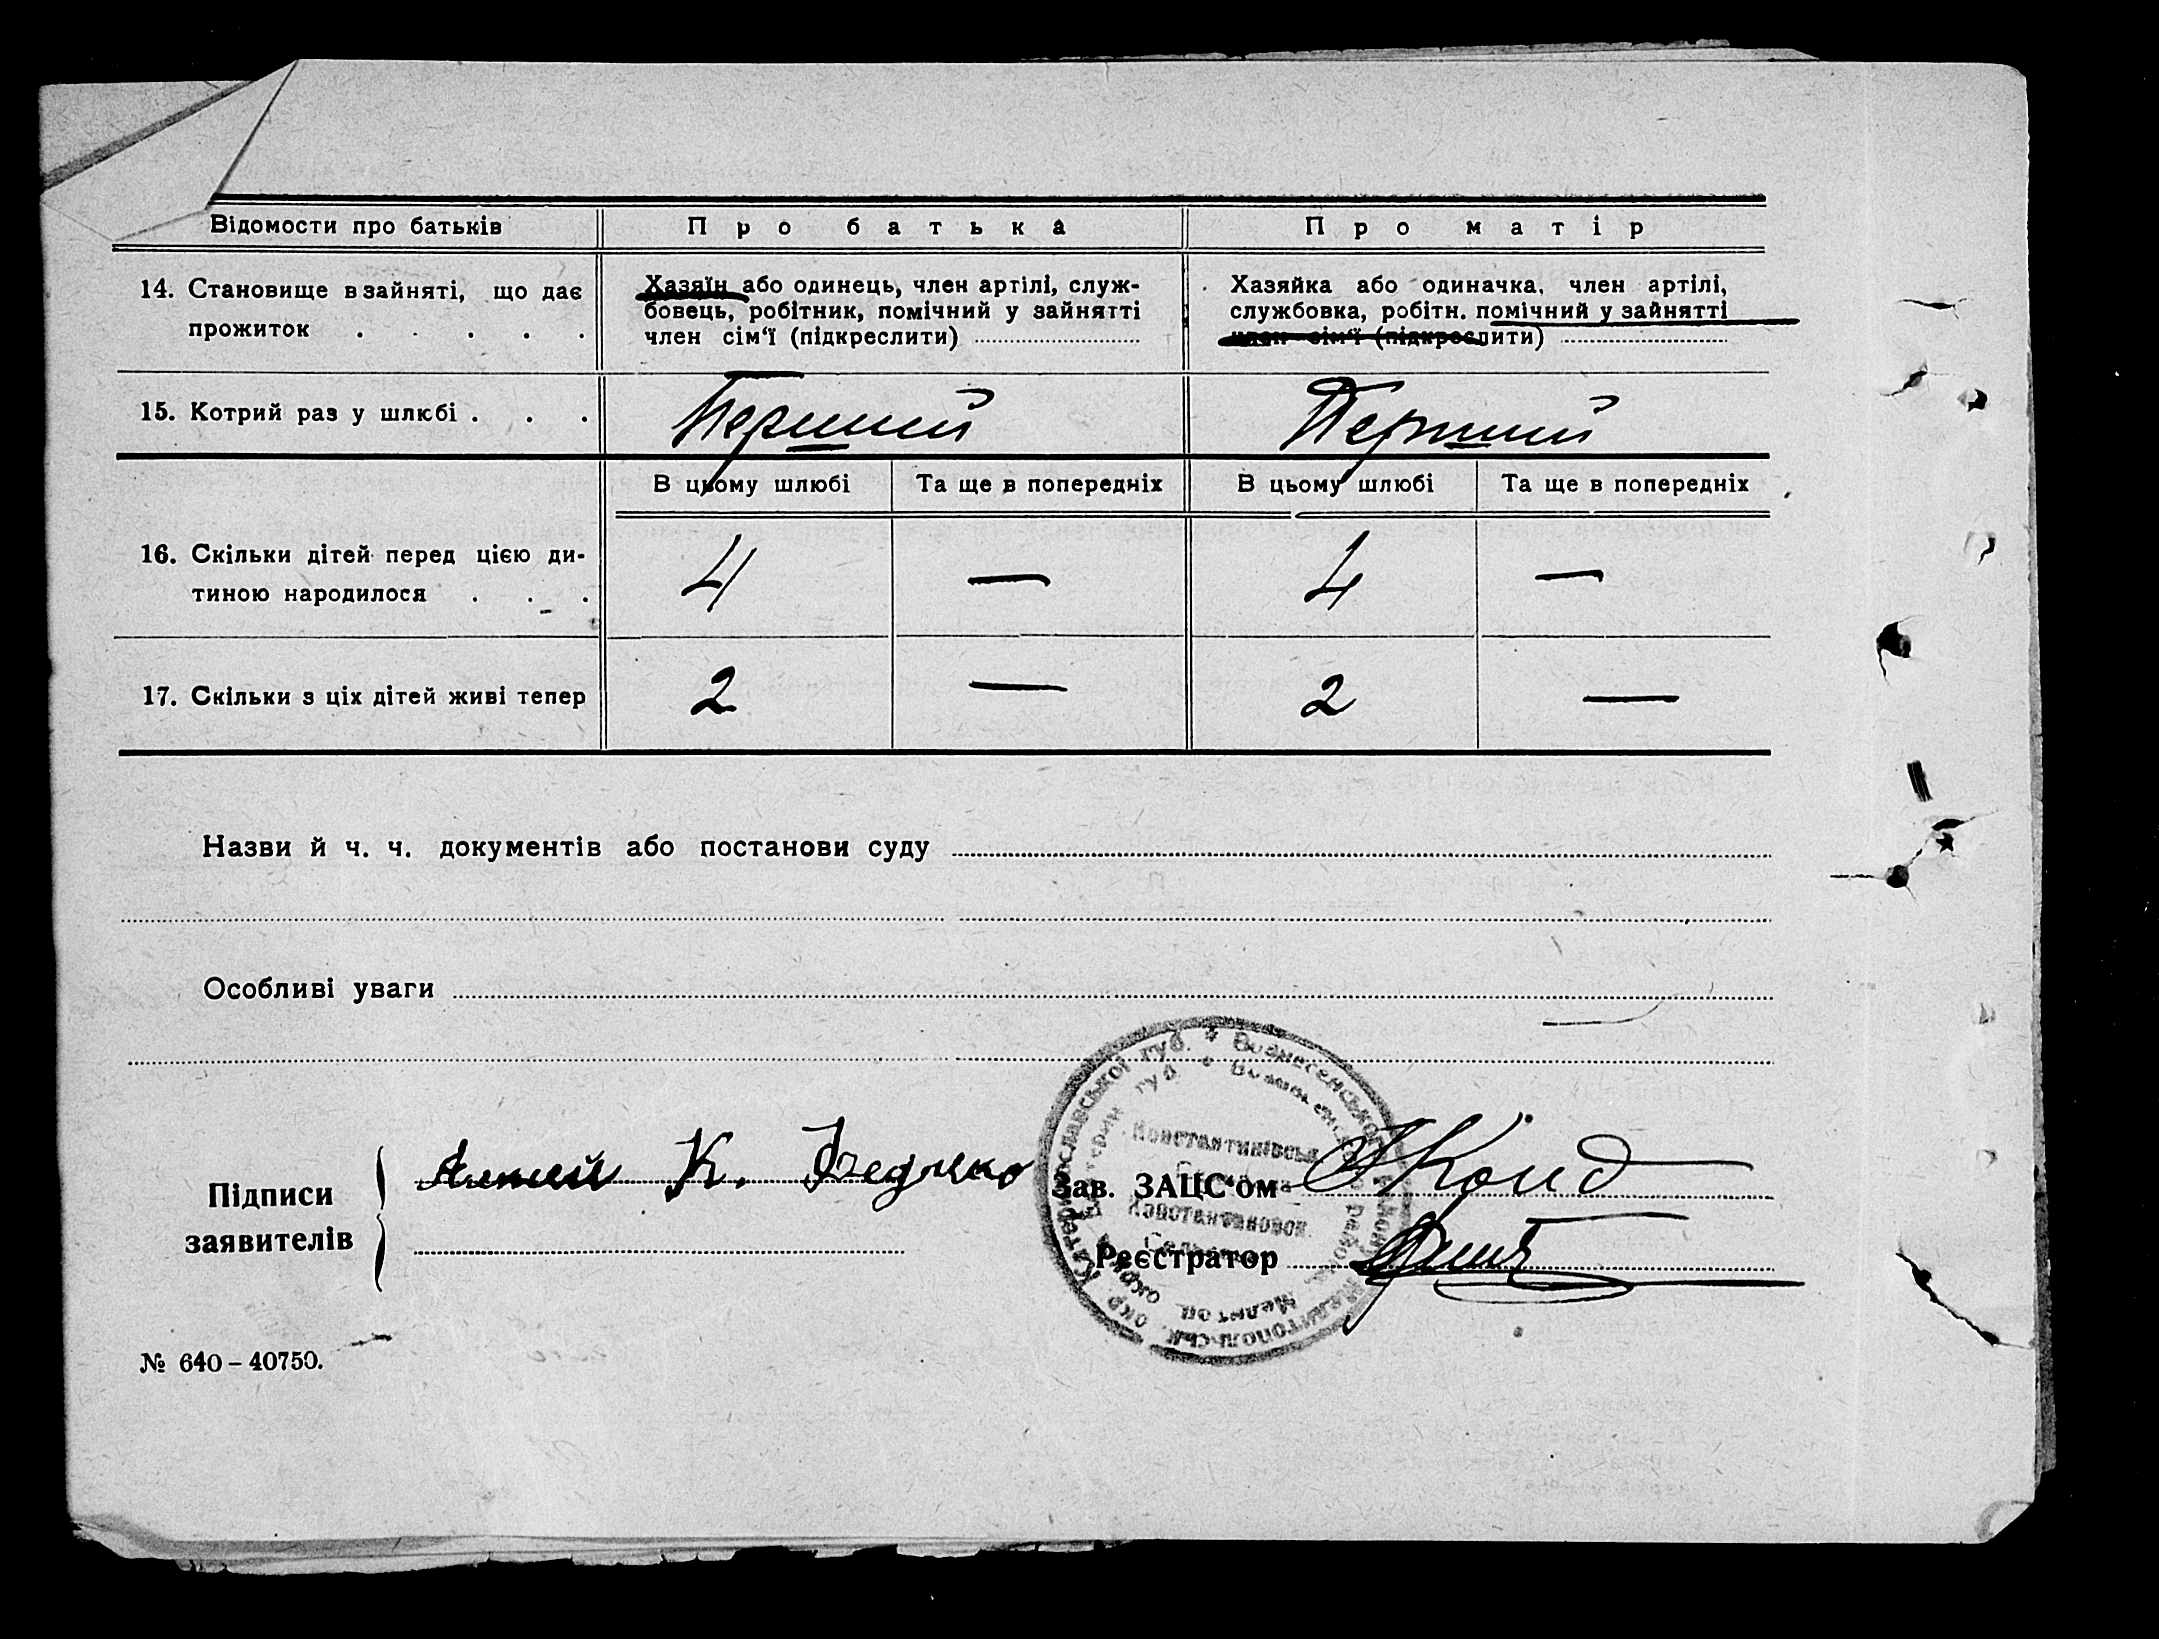 Відомости про батьків
Про батька
Про матір
14. Становище в зайняті, що дає
прожиток . . . . .
Хазяїн або одинець, член артілі, служ-
бовець, робітник, помічний у зайнятті
член сім‘ї (підкреслити)
Хазяйка або одиначка, член артілі,
службовка, робітн. помічний у зайнятті
член сім‘ї (підкреслити)
15. Котрий раз у шлюбі . . .
Перший
Перший
В цьому шлюбі
Та ще в попередніх
В цьому шлюбі
Та ще в попередніх
16. Скільки дітей перед цією ди-
тиною народилося . . .
4 — 4 —
17. Скільки з ціх дітей живі тепер
2 — 2 —
Назви й ч. ч. документів або постанови суду
Особливі уваги
Підписи
заявителів
К.
Зав. ЗАЦС‘ом
Реєстратор
Катеринославської губ. * Вознесенського району Мелитопольськ. окр.
Константинівська
№ 640 – 40750.